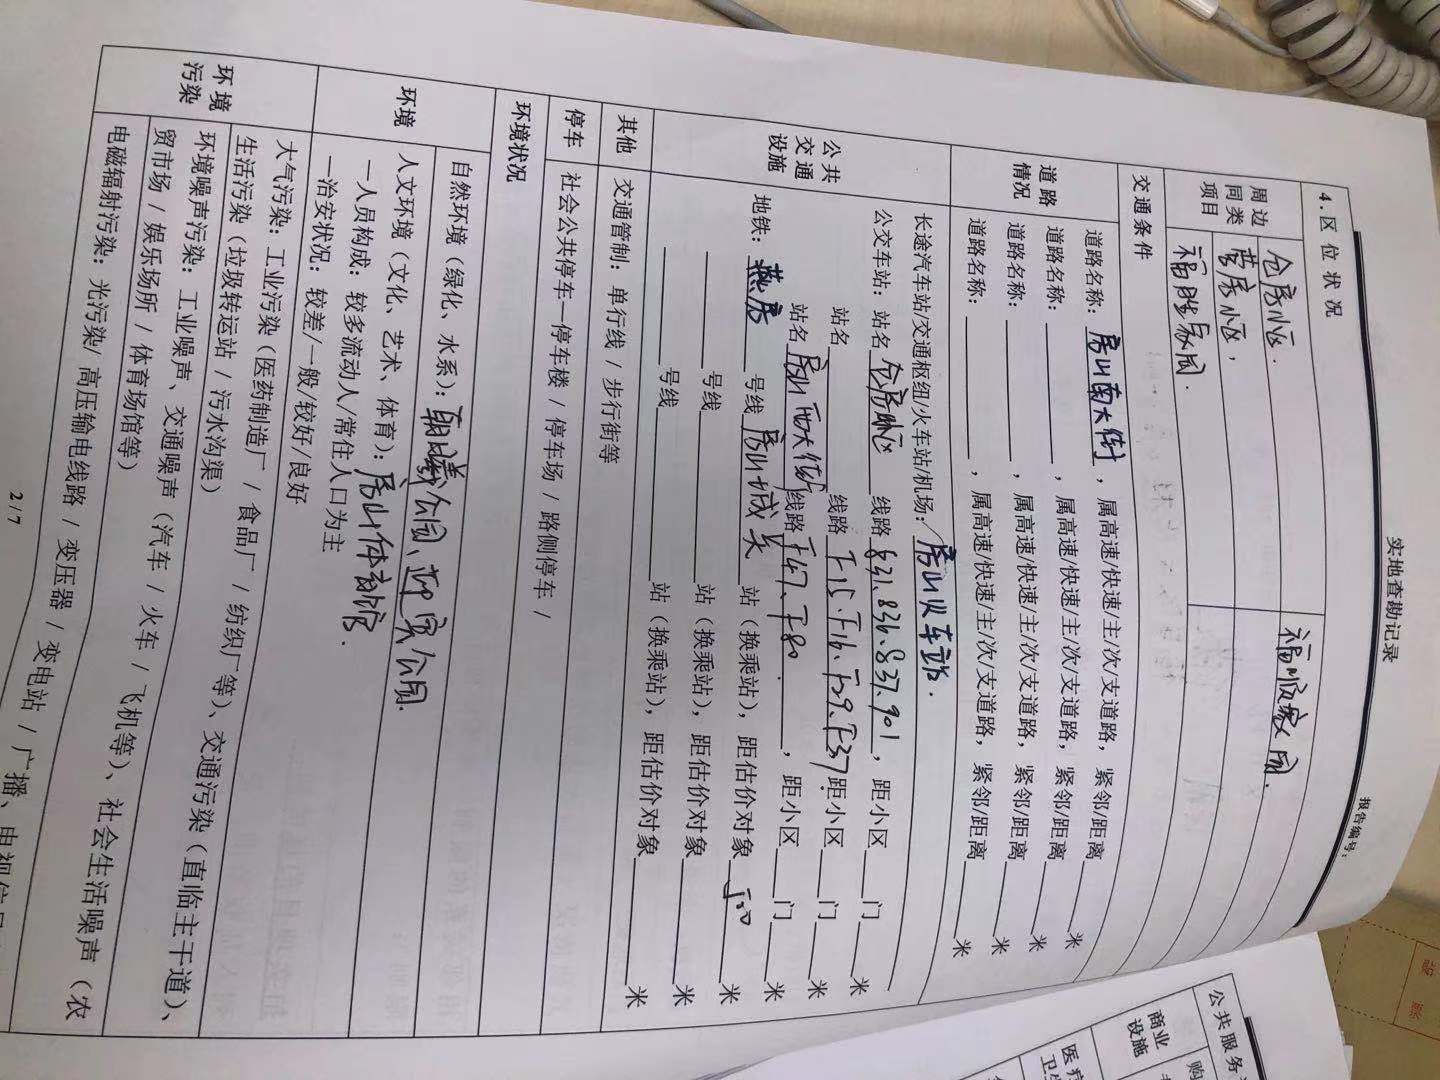 实地查勘记录
报告编号：
4.区位状况
周边同类项目
仓房小区.
福顺家园.
营房小区,
福胜家园.
交通条件
道路情况
道路名称：房山南大街，属高速/快速/主/次/支道路，紧邻/距离____米
道路名称：____，属高速/快速/主/次/支道路，紧邻/距离____米
道路名称：____，属高速/快速/主/次/支道路，紧邻/距离____米
道路名称：____，属高速/快速/主/次/支道路，紧邻/距离____米
公共交通设施
长途汽车站/交通枢纽/火车站/机场：房山火车站.
公交车站：站名 仓房小区 线路 831.836.837.901，距小区____门____米
站名____线路 F15.F16.F29.F37，距小区____门____米
站名 房山西大街 线路 F47、F80.，距小区____门____米
地铁：燕房 号线 房山城关 站（换乘站），距估价对象____米
____号线____站（换乘站），距估价对象____米
____号线____站（换乘站），距估价对象____米
其他 交通管制：单行线 / 步行街等
停车 社会公共停车—停车楼 / 停车场 / 路侧停车 /
环境状况
环境
自然环境（绿化、水系）：朝曦公园、迎宾公园.
人文环境（文化、艺术、体育）：房山体育馆.
—人员构成：较多流动人/常住人口为主
—治安状况：较差/一般/较好/良好
环境污染
大气污染：工业污染（医药制造厂 / 食品厂 / 纺织厂等）、交通污染（直临主干道）、
生活污染（垃圾转运站 / 污水沟渠）
环境噪声污染：工业噪声、交通噪声（汽车 / 火车 / 飞机等）、社会生活噪声（农
贸市场 / 娱乐场所 / 体育场馆等）
电磁辐射污染：光污染/ 高压输电线路 / 变压器 / 变电站 / 广播、电视信
2/7
公共服务
商业设施
购
医疗卫生